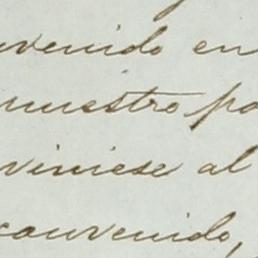 venido en
nuestro pa
viniese al
convenido,